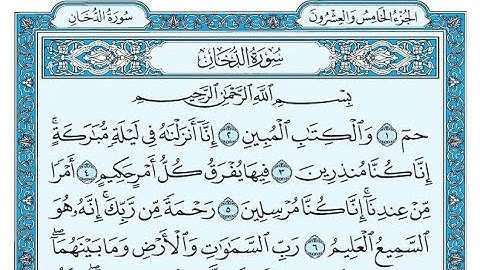 الجزء الخامس والعشرون
سورة الدخان
سورة الدخان
بسم الله الرحمن الرحيم
حمٓ ١ وَالْكِتَابِ الْمُبِينِ ٢ إِنَّا أَنْزَلْنَاهُ فِي لَيْلَةٍ مُبَارَكَةٍ ۚ
إِنَّا كُنَّا مُنْذِرِينَ ٣ فِيهَا يُفْرَقُ كُلُّ أَمْرٍ حَكِيمٍ ٤ أَمْرًا
مِّنْ عِنْدِنَا ۚ إِنَّا كُنَّا مُرْسِلِينَ ٥ رَحْمَةً مِّن رَّبِّكَ ۚ إِنَّهُ هُوَ
السَّمِيعُ الْعَلِيمُ ٦ رَبِّ السَّمَوَاتِ وَالْأَرْضِ وَمَا بَيْنَهُمَا ۖ